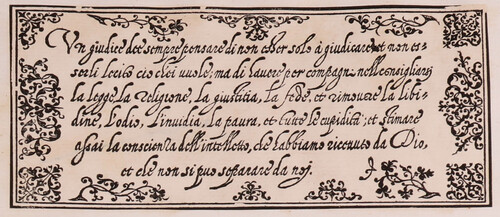 Un giudice dee sempre pensare di non esser solo à giudicare, et non es-
serli lecito cio ch'ei vuole; ma di havere per compagni nell consigliarsi
la legge, la religione, la giustitia, la fede, et rimovere la libi-
dine, l'odio, l'invidia, la paura, et tutte le cupidità; et stimare
assai la conscienza dell'intelletto, che habbiamo ricevuto da Dio,
et che non si puo separare da noj.